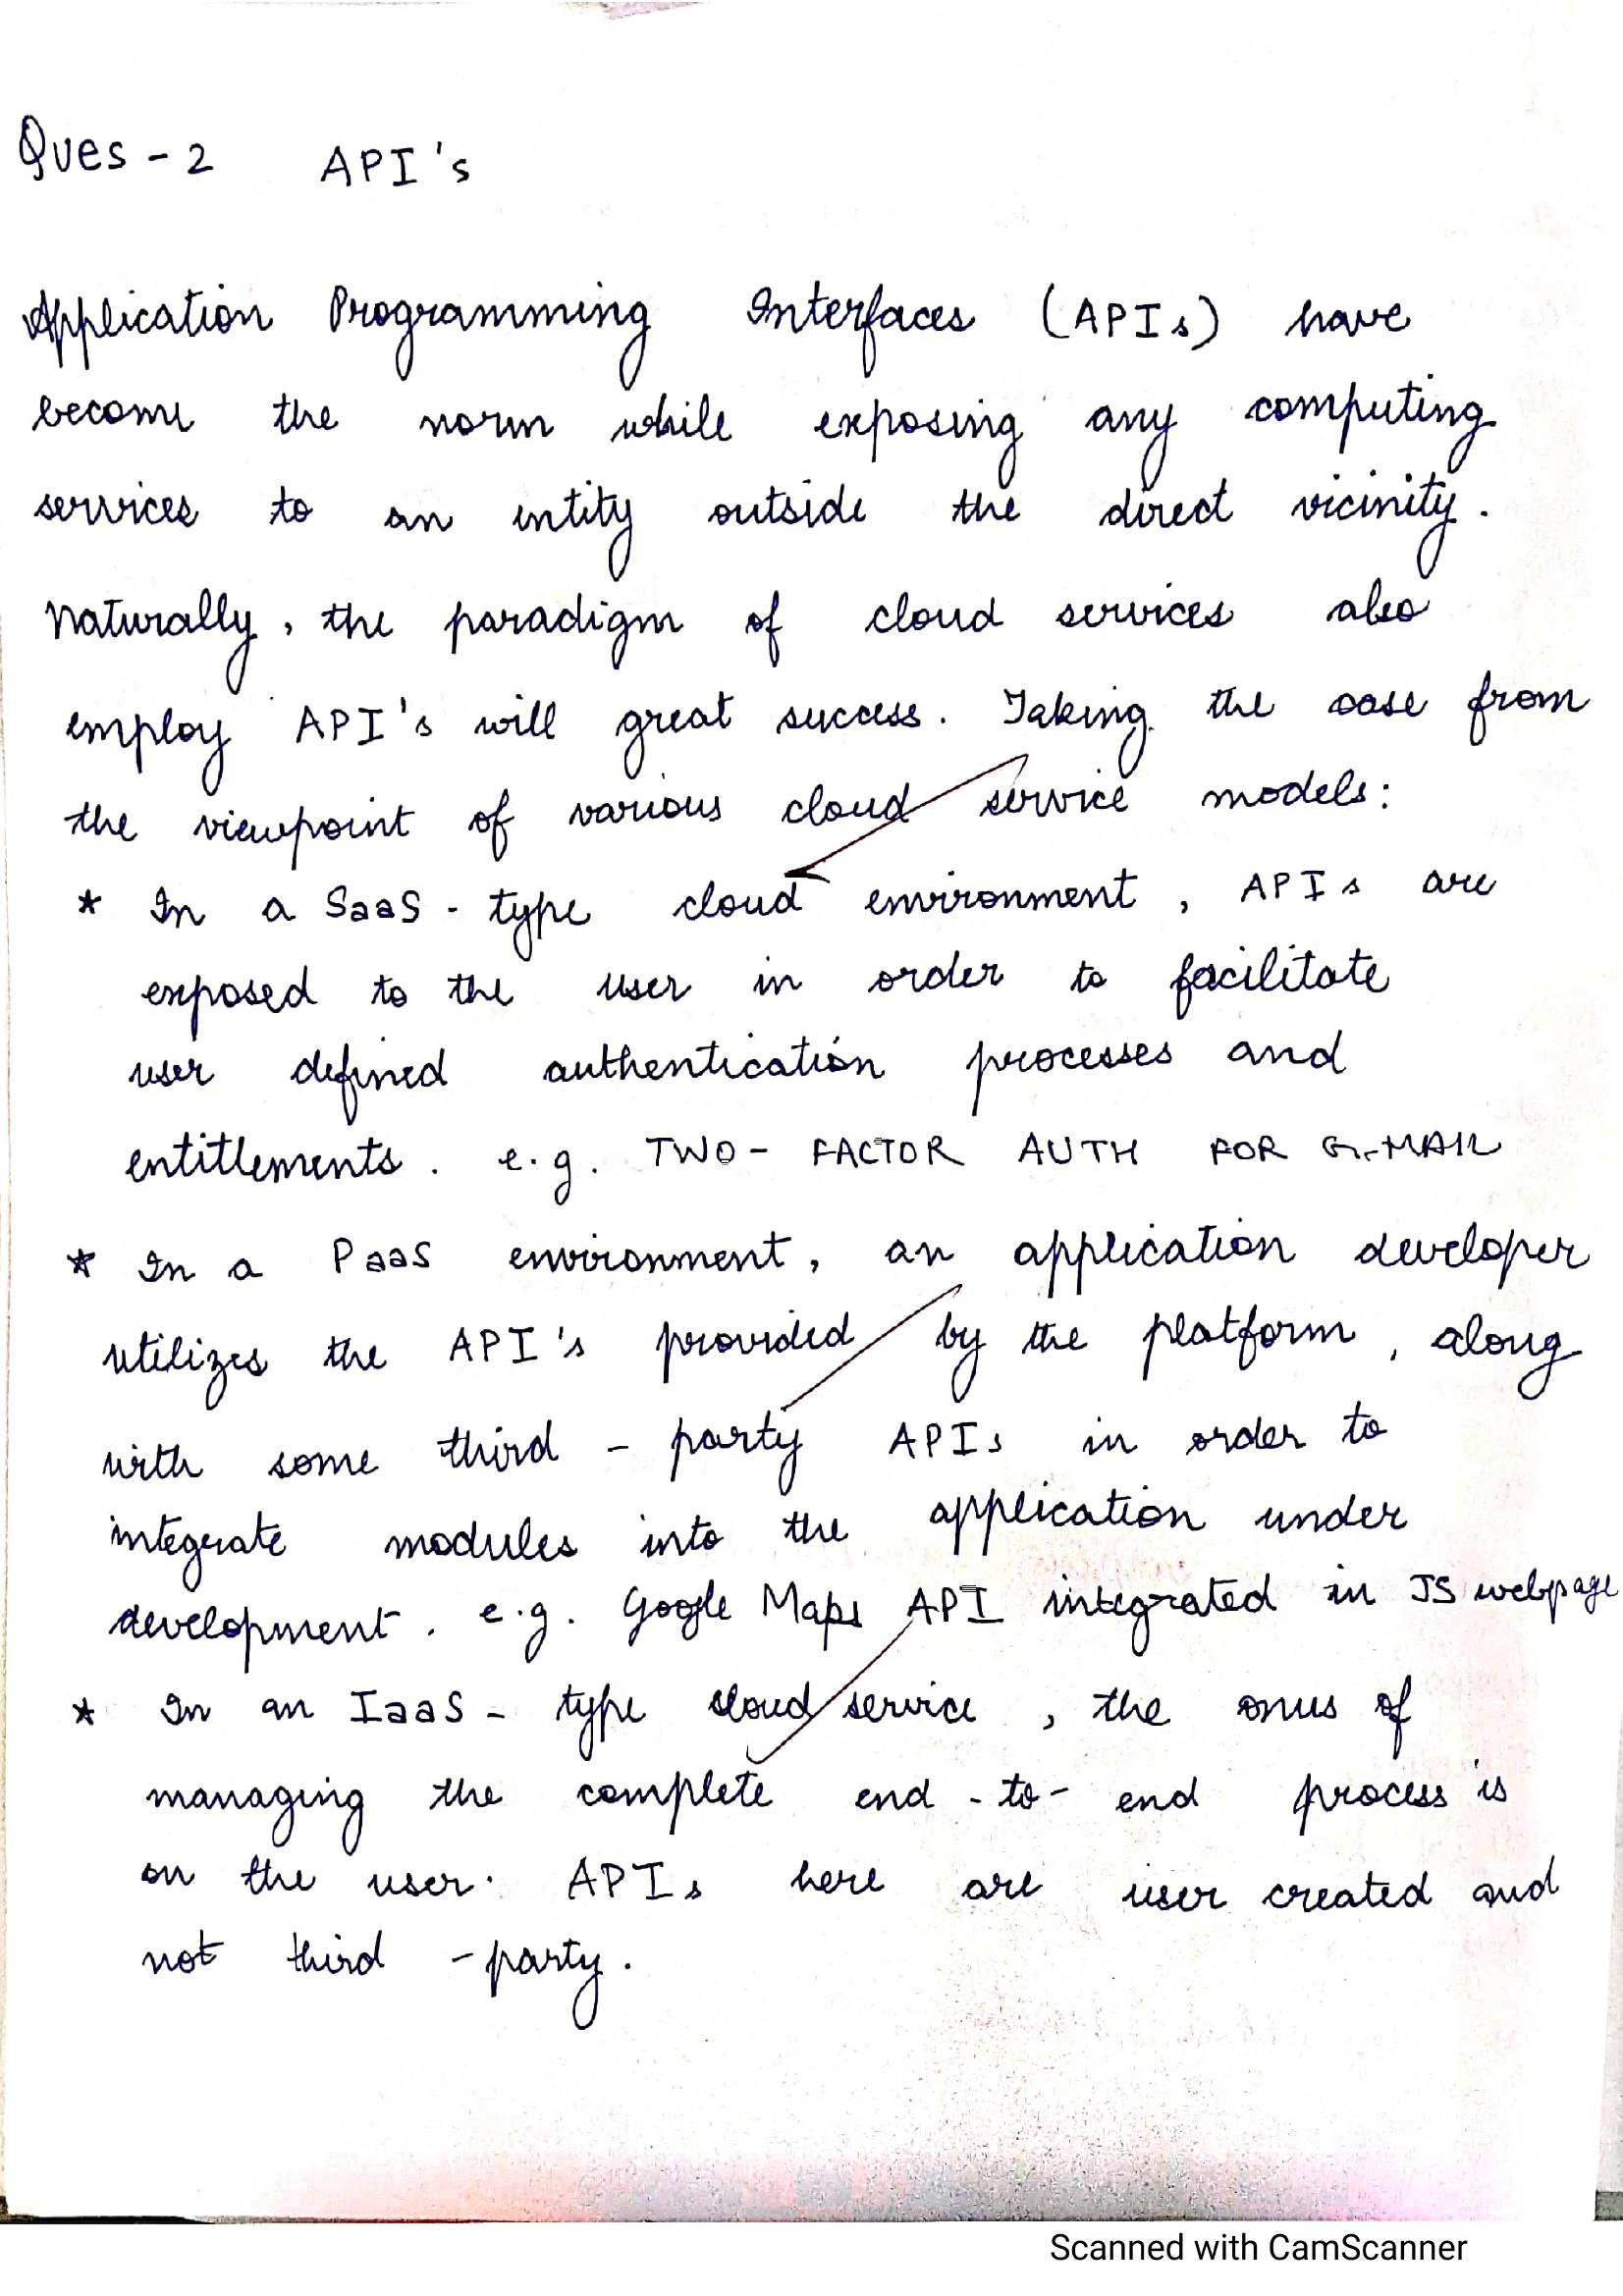 Ques - 2 API's
Application Programming Interfaces (APIs) have
become the norm while exposing any computing
services to an entity outside the direct vicinity.
Naturally, the paradigm of cloud services also
employ API's will great success. Taking the case from
the viewpoint of various cloud service models:
* In a SaaS - type cloud environment, APIs are
exposed to the user in order to facilitate
user defined authentication processes and
entitlements. e.g. TWO- FACTOR AUTH FOR G-MAIL
* In a PaaS environment, an application developer
utilizes the API's provided by the platform, along
with some third - party APIs in order to
integrate modules into the application under
development. e.g. Google Maps API integrated in JS webpage
* In an IaaS - type cloud service, the onus of
managing the complete end - to - end process is
on the user. APIs here are user created and
not third - party.
Scanned with CamScanner